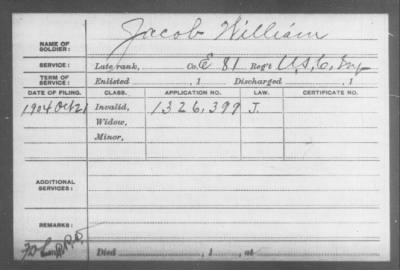 NAME OF SOLDIER: Jacob William
SERVICE: Late rank, Co. E 81 Reg't U.S.C. Inf
TERM OF SERVICE: Enlisted , 1 Discharged , 1
DATE OF FILING. CLASS. APPLICATION NO. LAW. CERTIFICATE NO.
1904 Oct 21 Invalid, 1326,399 J.
Widow,
Minor,
ADDITIONAL SERVICES:
REMARKS:
Died , 1 , at